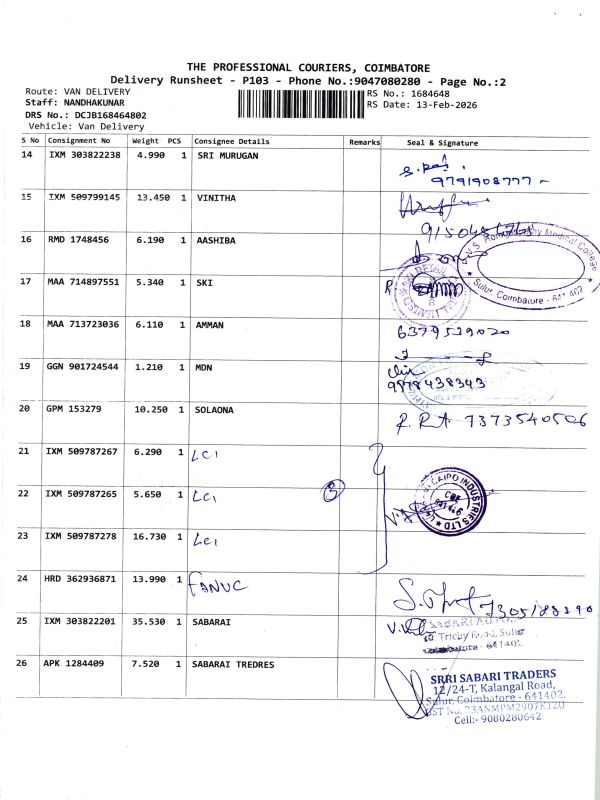 THE PROFESSIONAL COURIERS, COIMBATORE
Delivery Runsheet - P103 - Phone No.:9047080280 - Page No.:2
Route: VAN DELIVERY
RS No.: 1684648
Staff: NANDHAKUNAR
RS Date: 13-Feb-2026
DRS No.: DCJB168464802
Vehicle: Van Delivery
S No Consignment No Weight PCS Consignee Details Remarks Seal & Signature
14 IXM 303822238 4.990 1 SRI MURUGAN
9791908777
15 IXM 509799145 13.450 1 VINITHA
16 RMD 1748456 6.190 1 AASHIBA
Medical College
Sulur, Coimbatore - 641 402
17 MAA 714897551 5.340 1 SKI
18 MAA 713723036 6.110 1 AMMAN
6379539020
19 GGN 901724544 1.210 1 MDN
9878438343
20 GPM 153279 10.250 1 SOLAONA
R. RA 7373540506
21 IXM 509787267 6.290 1 LCI
22 IXM 509787265 5.650 1 LCI
3
INDUSTRIES LTD
23 IXM 509787278 16.730 1 LCI
24 HRD 362936871 13.990 1 FANUC
25 IXM 303822201 35.530 1 SABARAI
Trichy Road, Sulur
Coimbatore - 641402
26 APK 1284409 7.520 1 SABARAI TREDRES
SRRI SABARI TRADERS
12/24-T, Kalangal Road,
Sulur, Coimbatore - 641402.
Cell:- 9080280642